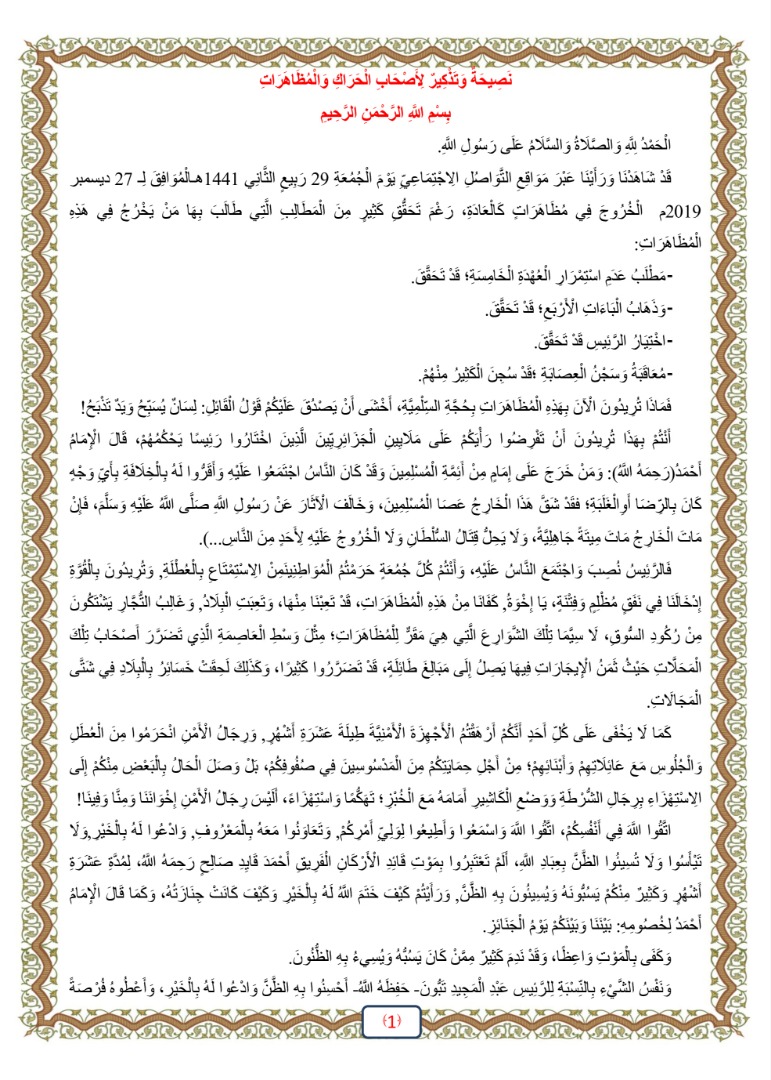 نَصِيحَةٌ وَتَذْكِيرٌ لِأَصْحَابِ الْحَرَاكِ وَالْمُظَاهَرَاتِ
بِسْمِ اللَّهِ الرَّحْمَنِ الرَّحِيمِ
الْحَمْدُ لِلَّهِ وَالصَّلَاةُ وَالسَّلَامُ عَلَى رَسُولِ اللَّهِ.
قَدْ شَاهَدْنَا وَرَأَيْنَا عَبْرَ مَوَاقِعِ التَّوَاصُلِ الِاجْتِمَاعِيِّ يَوْمَ الْجُمُعَةِ 29 رَبِيعِ الثَّانِي 1441هـالْمُوَافِقَ لِـ 27 ديسمبر
2019م الْخُرُوجَ فِي مُظَاهَرَاتٍ كَالْعَادَةِ، رَغْمَ تَحَقُّقِ كَثِيرٍ مِنَ الْمَطَالِبِ الَّتِي طَالَبَ بِهَا مَنْ يَخْرُجُ فِي هَذِهِ
الْمُظَاهَرَاتِ:
-مَطْلَبُ عَدَمِ اسْتِمْرَارِ الْعُهْدَةِ الْخَامِسَةِ؛ قَدْ تَحَقَّقَ.
-وَذَهَابُ الْبَاءَاتِ الْأَرْبَعِ؛ قَدْ تَحَقَّقَ.
-اخْتِيَارُ الرَّئِيسِ قَدْ تَحَقَّقَ.
-مُعَاقَبَةُ وَسَجْنُ الْعِصَابَةِ ؛قَدْ سُجِنَ الْكَثِيرُ مِنْهُمْ.
فَمَاذَا تُرِيدُونَ الْآنَ بِهَذِهِ الْمُظَاهَرَاتِ بِحُجَّةِ السِّلْمِيَّةِ، أَخْشَى أَنْ يَصْدُقَ عَلَيْكُمْ قَوْلُ الْقَائِلِ: لِسَانٌ يُسَبِّحُ وَيَدٌ تَذْبَحُ!
أَنْتُمْ بِهَذَا تُرِيدُونَ أَنْ تَفْرِضُوا رَأْيَكُمْ عَلَى مَلَايِينِ الْجَزَائِرِيِّينَ الَّذِينَ اخْتَارُوا رَئِيسًا يَحْكُمُهُمْ، قَالَ الْإِمَامُ
أَحْمَدُ(رَحِمَهُ اللَّهُ): وَمَنْ خَرَجَ عَلَى إِمَامٍ مِنْ أَئِمَّةِ الْمُسْلِمِينَ وَقَدْ كَانَ النَّاسُ اجْتَمَعُوا عَلَيْهِ وَأَقَرُّوا لَهُ بِالْخِلَافَةِ بِأَيِّ وَجْهٍ
كَانَ بِالرِّضَا أَوِالْغَلَبَةِ؛ فقَدْ شَقَّ هَذَا الْخَارِجُ عَصَا الْمُسْلِمِينَ، وَخَالَفَ الْآثَارَ عَنْ رَسُولِ اللَّهِ صَلَّى اللَّهُ عَلَيْهِ وَسَلَّمَ، فَإِنْ
مَاتَ الْخَارِجُ مَاتَ مِيتَةً جَاهِلِيَّةً، وَلَا يَحِلُّ قِتَالُ السُّلْطَانِ وَلَا الْخُرُوجُ عَلَيْهِ لِأَحَدٍ مِنَ النَّاسِ...).
فَالرَّئِيسُ نُصِبَ وَاجْتَمَعَ النَّاسُ عَلَيْهِ، وَأَنْتُمْ كُلَّ جُمُعَةٍ حَرَمْتُمُ الْمُوَاطِنِينَمِنَ الِاسْتِمْتَاعِ بِالْعُطْلَةِ, وَتُرِيدُونَ بِالْقُوَّةِ
إِدْخَالَنَا فِي نَفَقٍ مُظْلِمٍ وَفِتْنَةٍ, يَا إِخْوَةُ, كَفَانَا مِنْ هَذِهِ الْمُظَاهَرَاتِ، قَدْ تَعِبْنَا مِنْهَا، وَتَعِبَتِ الْبِلَادُ, وَغَالِبُ التُّجَّارِ يَشْتَكُونَ
مِنْ رُكُودِ السُّوقِ، لَا سِيَّمَا تِلْكَ الشَّوَارِعَ الَّتِي هِيَ مَقَرٌّ لِلْمُظَاهَرَاتِ؛ مِثْلَ وَسْطِ الْعَاصِمَةِ الَّذِي تَضَرَّرَ أَصْحَابُ تِلْكَ
الْمَحَلَّاتِ حَيْثُ ثَمَنُ الْإِيجَارَاتِ فِيهَا يَصِلُ إِلَى مَبَالِغَ طَائِلَةٍ، قَدْ تَضَرَّرُوا كَثِيرًا، وَكَذَلِكَ لَحِقَتْ خَسَائِرُ بِالْبِلَادِ فِي شَتَّى
الْمَجَالَاتِ.
كَمَا لَا يَخْفَى عَلَى كُلِّ أَحَدٍ أَنَّكُمْ أَرْهَقْتُمُ الْأَجْهِزَةَ الْأَمْنِيَّةَ طِيلَةَ عَشَرَةِ أَشْهُرٍ, وَرِجَالُ الْأَمْنِ انْحَرَمُوا مِنَ الْعُطَلِ
وَالْجُلُوسِ مَعَ عَائِلَاتِهِمْ وَأَبْنَائِهِمْ؛ مِنْ أَجْلِ حِمَايَتِكُمْ مِنَ الْمَدْسُوسِينَ فِي صُفُوفِكُمْ، بَلْ وَصَلَ الْحَالُ بِالْبَعْضِ مِنْكُمْ إِلَى
الِاسْتِهْزَاءِ بِرِجَالِ الشُّرْطَةِ وَوَضْعِ الْكَاشِيرِ أَمَامَهُ مَعَ الْخُبْزِ؛ تَهَكُّمًا وَاسْتِهْزَاءً، أَلَيْسَ رِجَالُ الْأَمْنِ إِخْوَانَنَا وَمِنَّا وَفِينَا!
اتَّقُوا اللَّهَ فِي أَنْفُسِكُمْ، اتَّقُوا اللَّهَ وَاسْمَعُوا وَأَطِيعُوا لِوَلِيِّ أَمْرِكُمْ, وَتَعَاوَنُوا مَعَهُ بِالْمَعْرُوفِ, وَادْعُوا لَهُ بِالْخَيْرِ,وَلَا
تَيْأَسُوا وَلَا تُسِيئُوا الظَّنَّ بِعِبَادِ اللَّهِ، أَلَمْ تَعْتَبِرُوا بِمَوْتِ قَائِدِ الْأَرْكَانِ الْفَرِيقِ أَحْمَدَ قَايِد صَالِحٍ رَحِمَهُ اللَّهُ، لِمُدَّةِ عَشَرَةِ
أَشْهُرٍ وَكَثِيرٌ مِنْكُمْ يَسُبُّونَهُ وَيُسِيئُونَ بِهِ الظَّنَّ, وَرَأَيْتُمْ كَيْفَ خَتَمَ اللَّهُ لَهُ بِالْخَيْرِ وَكَيْفَ كَانَتْ جِنَازَتُهُ، وَكَمَا قَالَ الْإِمَامُ
أَحْمَدُ لِخُصُومِهِ: بَيْنَنَا وَبَيْنَكُمْ يَوْمُ الْجَنَائِزِ.
وَكَفَى بِالْمَوْتِ وَاعِظًا، وَقَدْ نَدِمَ كَثِيرٌ مِمَّنْ كَانَ يَسُبُّهُ وَيُسِيءُ بِهِ الظُّنُونَ.
وَنَفْسُ الشَّيْءِ بِالنِّسْبَةِ لِلرَّئِيسِ عَبْدِ الْمَجِيدِ تَبُّونَ- حَفِظَهُ اللَّهُ- أَحْسِنُوا بِهِ الظَّنَّ وَادْعُوا لَهُ بِالْخَيْرِ، وَأَعْطُوهُ فُرْصَةً
﴿1﴾